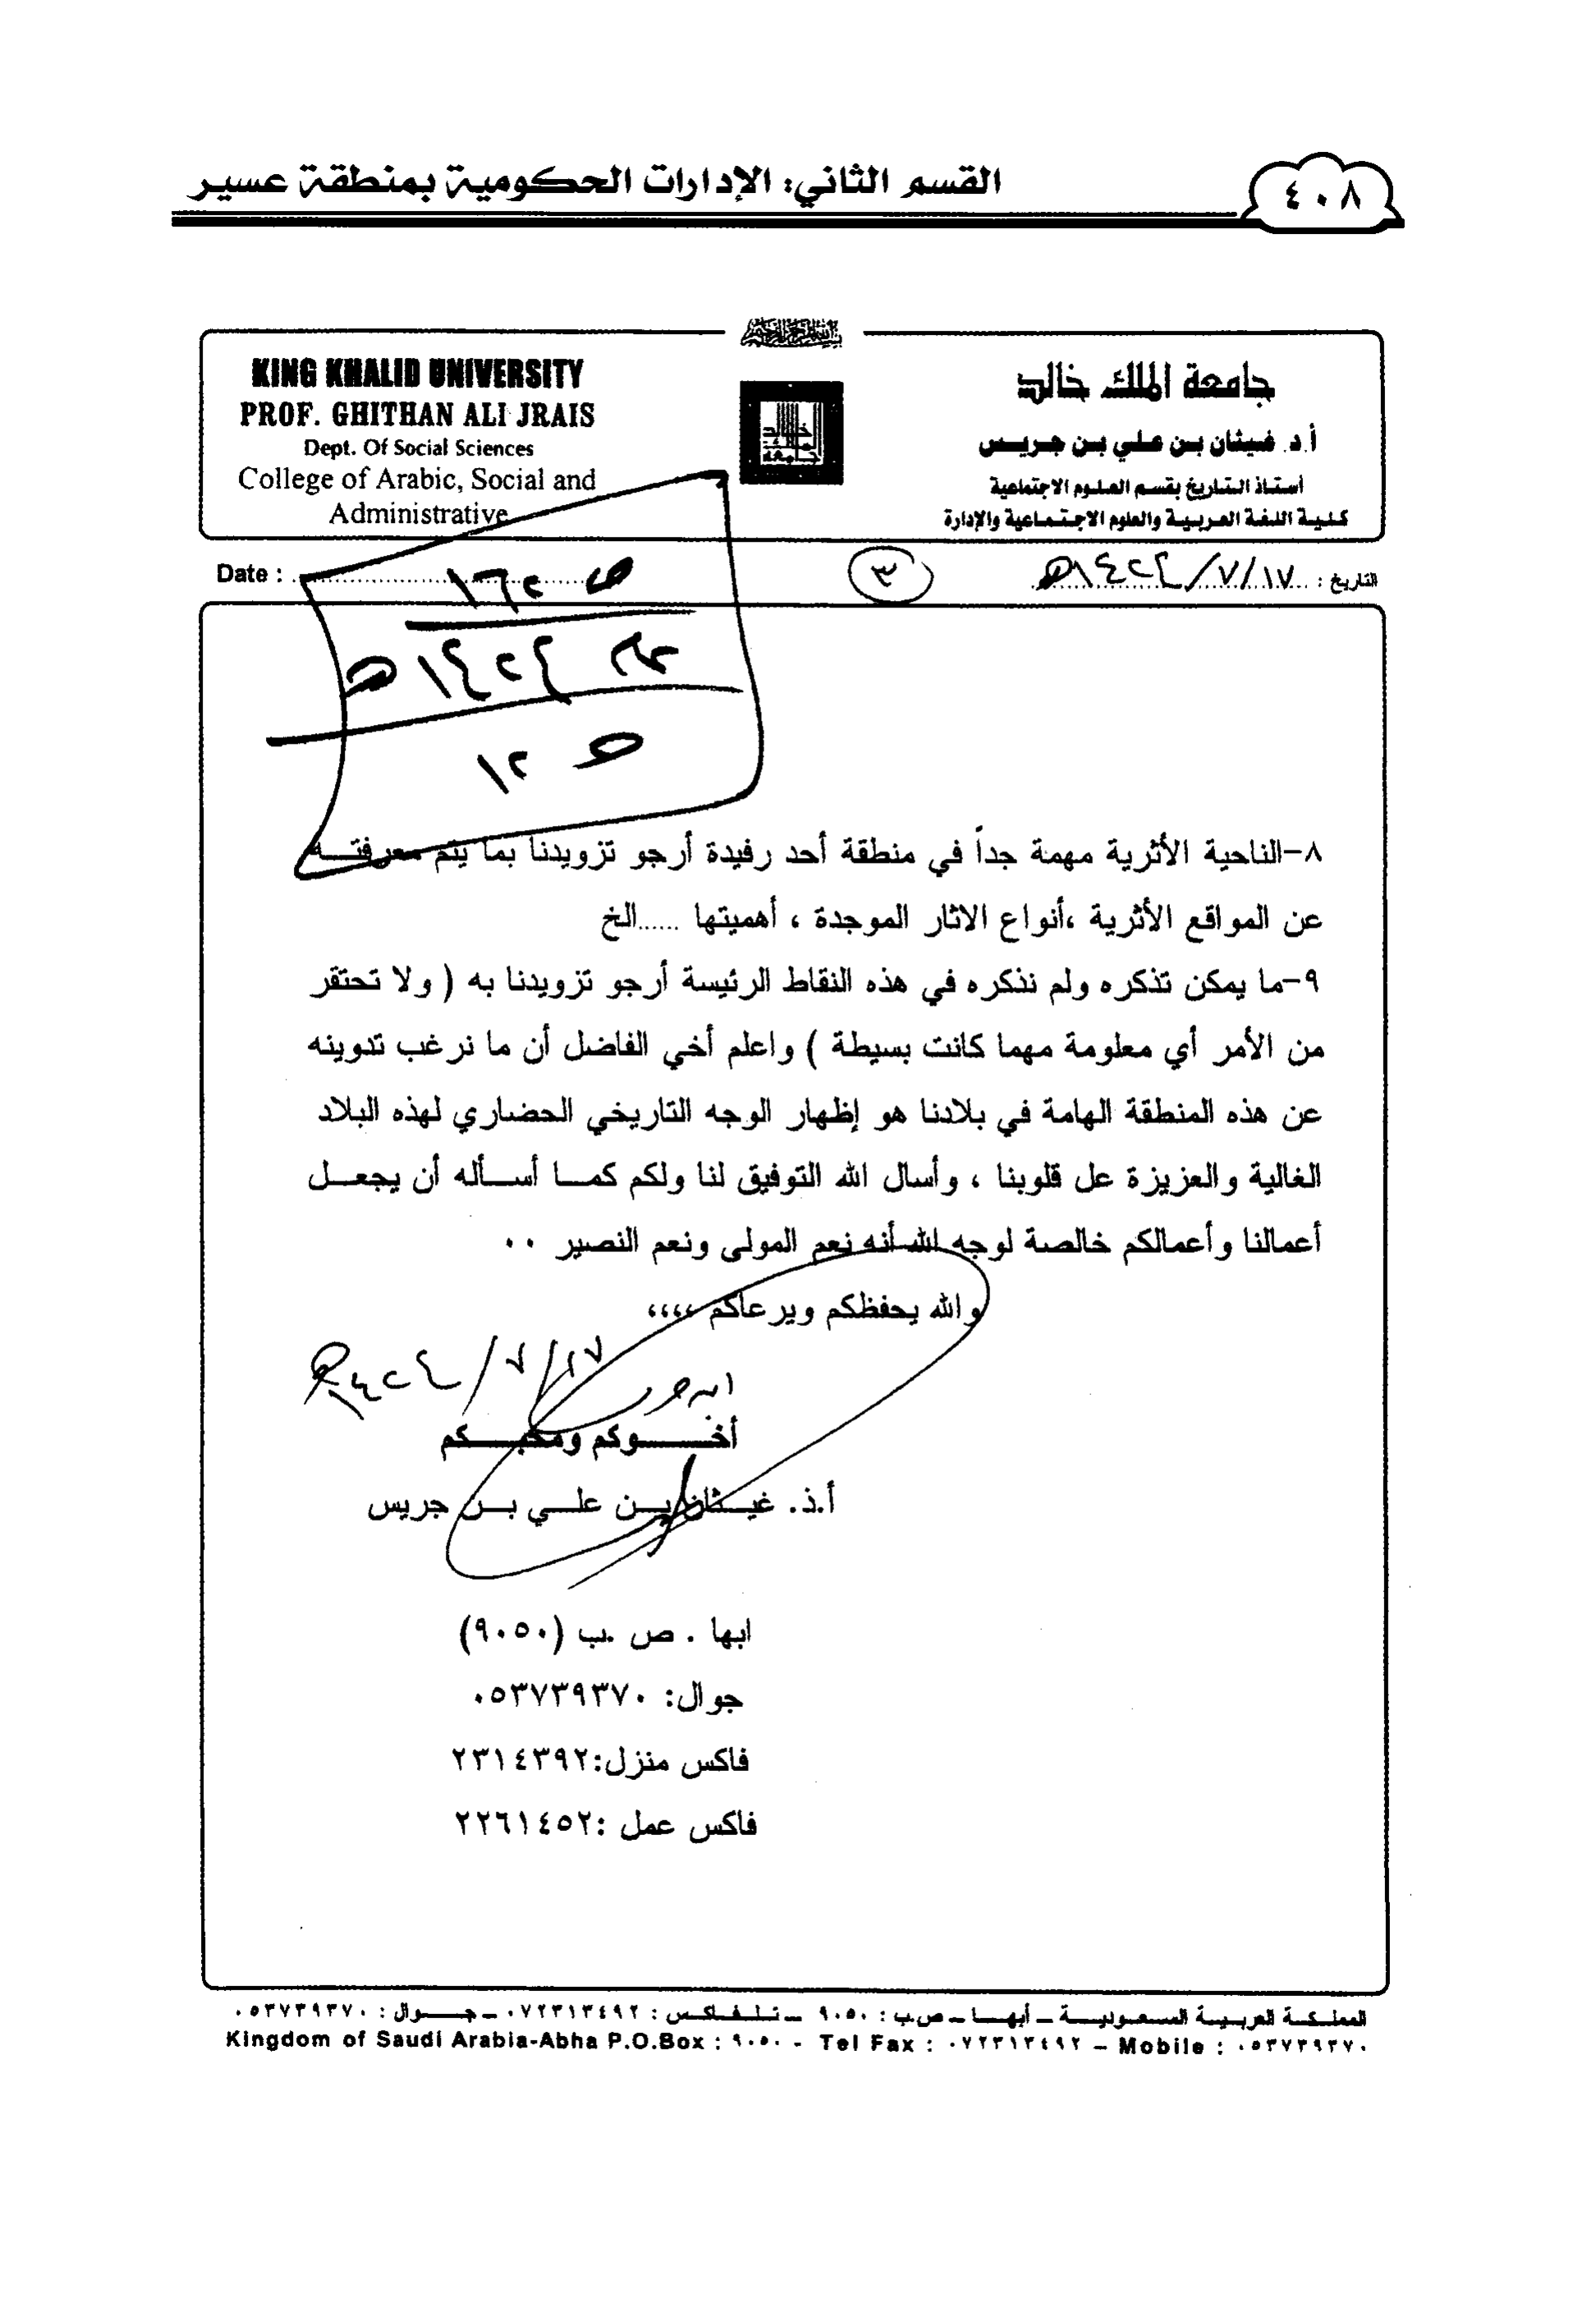 ٤٠٨
القسم الثاني: الإدارات الحكومية بمنطقة عسير
جامعة الملك خالد
أ.د. غيثان بن علي بن جريس
أستاذ التاريخ بقسم العلوم الاجتماعية
كلية اللغة العربية والعلوم الاجتماعية والإدارة
KING KHALID UNIVERSITY
PROF. GHITHAN ALI JRAIS
Dept. Of Social Sciences
College of Arabic, Social and
Administrative
التاريخ : ١٧/٧/١٤٢٤هـ
٣
Date :
ص ١٦٢
١٤٢٤هـ
ص ١٢
٨-الناحية الأثرية مهمة جداً في منطقة أحد رفيدة أرجو تزويدنا بما يتم معرفتـــه
عن المواقع الأثرية ،أنواع الاثار الموجدة ، أهميتها ......الخ
٩-ما يمكن تذكره ولم نذكره في هذه النقاط الرئيسة أرجو تزويدنا به ( ولا تحتقر
من الأمر أي معلومة مهما كانت بسيطة ) واعلم أخي الفاضل أن ما نرغب تدوينه
عن هذه المنطقة الهامة في بلادنا هو إظهار الوجه التاريخي الحضاري لهذه البلاد
الغالية والعزيزة عل قلوبنا ، وأسال الله التوفيق لنا ولكم كمـا أسـأله أن يجعـل
أعمالنا وأعمالكم خالصة لوجه الله أنه نعم المولى ونعم النصير ..
والله يحفظكم ويرعاكم ،،،،
١٧/٧/١٤٢٤هـ
أخـــوكم ومحبـــكم
أ.ذ. غيـثان بـن علـي بـن جريس
ابها . ص .ب (٩٠٥٠)
جوال: ٠٥٣٧٣٩٣٧٠
فاكس منزل:٢٣١٤٣٩٢
فاكس عمل :٢٢٦١٤٥٢
المملكـة العربيـة السعـوديـة ـ أبهـا ـ ص.ب : ٩٠٥٠ ـ تـلـفـاكـس : ٠٧٢٣١٣٤٩٢ ـ جـــوال : ٠٥٣٧٣٩٣٧٠
Kingdom of Saudi Arabia-Abha P.O.Box : ٩٠٥٠ - Tel Fax : ٠٧٢٣١٣٤٩٢ – Mobile : ٠٥٣٧٣٩٣٧٠